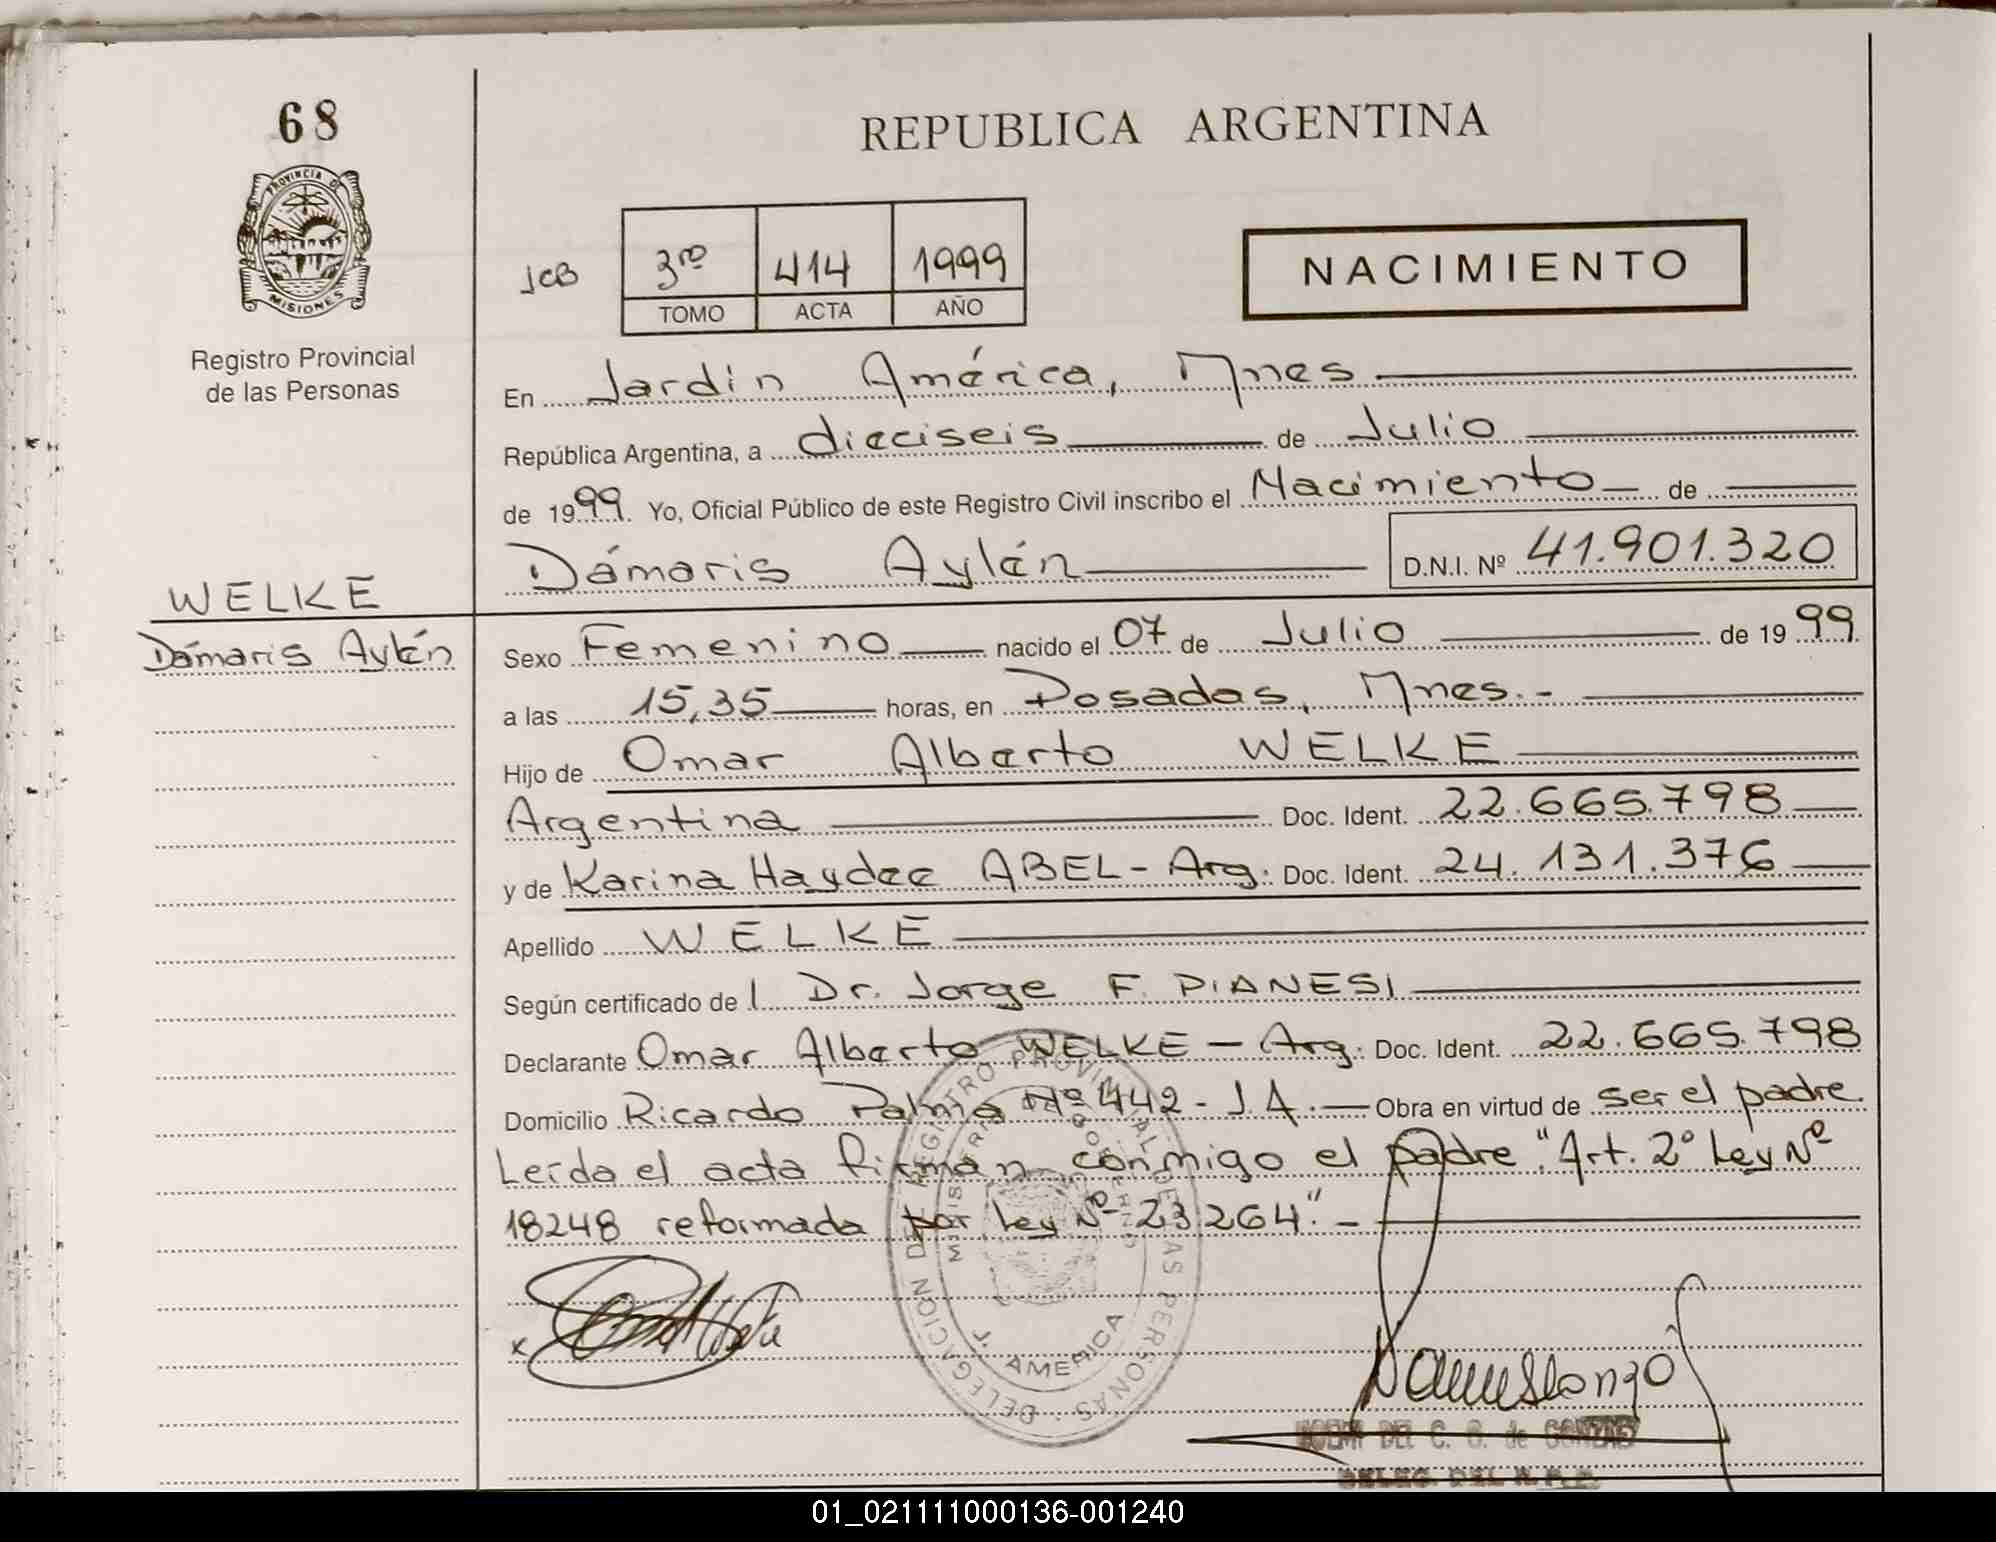 68
REPUBLICA ARGENTINA
PROVINCIA DE
MISIONES
JCB
3ro 414 1999
TOMO ACTA AÑO
NACIMIENTO
Registro Provincial
de las Personas
En Jardín América, Mnes
República Argentina, a dieciseis de Julio
de 1999. Yo, Oficial Público de este Registro Civil inscribo el Nacimiento de
Dámaris Aylén D.N.I. Nº 41.901.320
WELKE
Dámaris Aylén
Sexo Femenino nacido el 07 de Julio de 1999
a las 15,35 horas, en Posadas, Mnes.-
Hijo de Omar Alberto WELKE
Argentina Doc. Ident. 22.665.798
y de Karina Haydee ABEL - Arg. Doc. Ident. 24.131.376
Apellido WELKE
Según certificado de l Dr. Jorge F. PIANESI
Declarante Omar Alberto WELKE - Arg. Doc. Ident. 22.665.798
Domicilio Ricardo Palma Nº 442 - J.A. Obra en virtud de ser el padre.
Leída el acta firman conmigo el padre "Art. 2º Ley Nº
18248 reformada por Ley Nº 23264".-
DELEGACION DEL REGISTRO PROVINCIAL DE LAS PERSONAS
MINISTERIO DE GOBIERNO
J. AMERICA
x
DEL C. G. de
DELEG. DEL R.P.P.
01_021111000136-001240